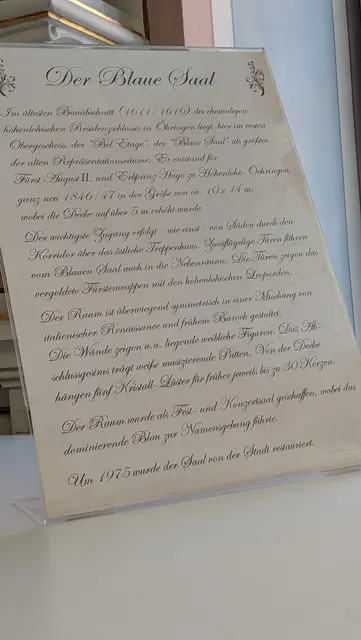 Der Blaue Saal
Im ältesten Bauabschnitt (1611/1616) des ehemaligen
hohenlohischen Residenzschlosses in Öhringen liegt hier im ersten
Obergeschoss, der "Bel Etage", der "Blaue Saal" als größter
der alten Repräsentationsräume. Er entstand für
Fürst August II. und Erbprinz Hugo zu Hohenlohe-Oehringen
ganz neu 1846/47 in der Größe von ca. 10 x 14 m,
wobei die Decke auf über 5 m erhöht wurde.
Der wichtigste Zugang erfolgt - wie einst - von Süden durch den
Korridor über das östliche Treppenhaus. Zweiflügelige Türen führen
vom Blauen Saal auch in die Nebenräume. Die Türen zeigen das
vergoldete Fürstenwappen mit den hohenlohischen Leoparden.
Der Raum ist überwiegend symmetrisch in einer Mischung von
italienischer Renaissance und frühem Barock gestaltet.
Die Wände zeigen u.a. liegende weibliche Figuren. Das Ab-
schlussgesims trägt weiße musizierende Putten. Von der Decke
hängen fünf Kristall-Lüster für früher jeweils bis zu 30 Kerzen.
Der Raum wurde als Fest- und Konzertsaal geschaffen, wobei das
dominierende Blau zur Namensgebung führte.
Um 1975 wurde der Saal von der Stadt restauriert.